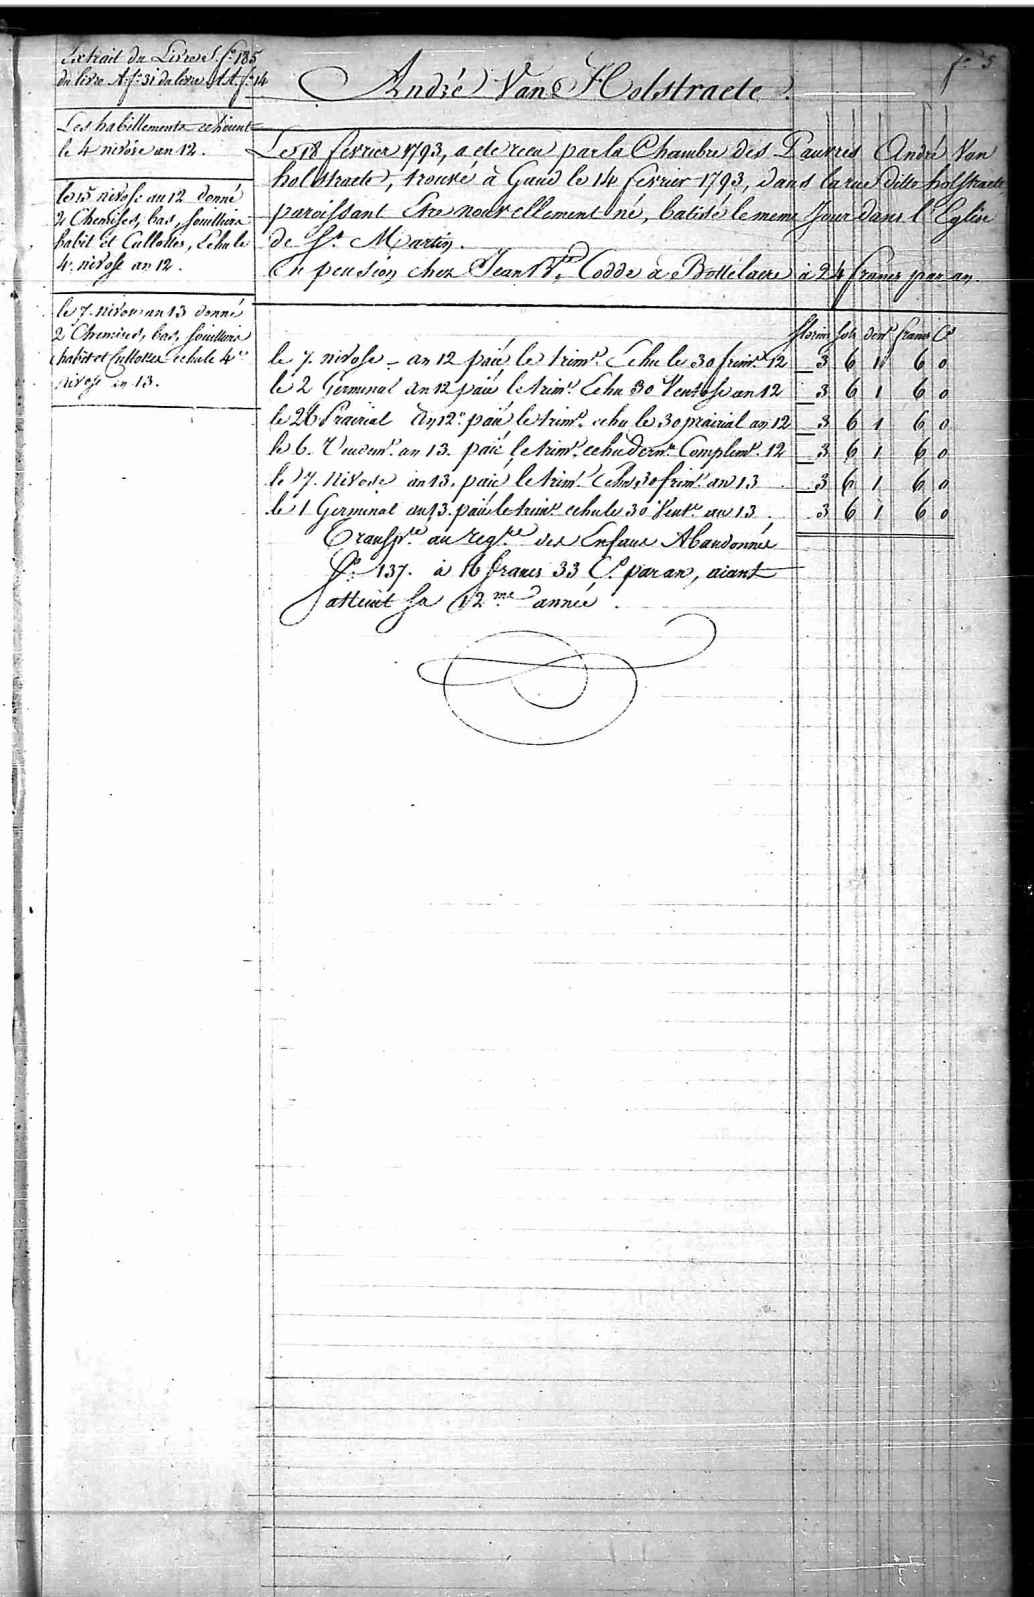 fo 5
Extrait du Livre S. fo 185
du livre A fo 31 du livre AA fo 14
André Van Holstraete.
Les habillements echoient
le 4 nivôse an 12.
le 15 nivose an 12 donné
2 Chemises, bas, souilliers
habit et Cullottes, Echu le
4. nivose an 12.
le 7. nivose an 13 donné
2 Chemises, bas, souilliers
habit et Cullottes echu le 4e
nivose an 13.
Le 18 fevrier 1793, a ete recu par la Chambre des Pauvres André Van
holstraete, trouvé à Gand le 14 fevrier 1793, dans la rue ditte holstraete
paroissant être nouvellement né, batisé le meme Jour dans l'Eglise
de St Martin.
En pension chez Jean Codde à Bottelaere à 24 francs par an.
florins sols dens francs Cs
le 7. nivose - an 12 paié le trime Echu le 30 frime 12 3 6 1 6 0
le 2 Germinal an 12 paié le trime Echu 30 Ventose an 12 3 6 1 6 0
le 28 Prairial an 12e paié le trime echu le 30 prairial an 12 3 6 1 6 0
le 6. Vendeme an 13. paié le trime echu dern Complime 12 3 6 1 6 0
le 7. Nivose an 13. paié le trime Echu 30 frime an 13 3 6 1 6 0
le 1 Germinal an 13. paié le trime echu le 30 Vente an 13. 3 6 1 6 0
Transpté au regtre des Enfans Abandonnés
fo 137. à 16 francs 33 Cs par an, aiant
atteint sa 12me année.